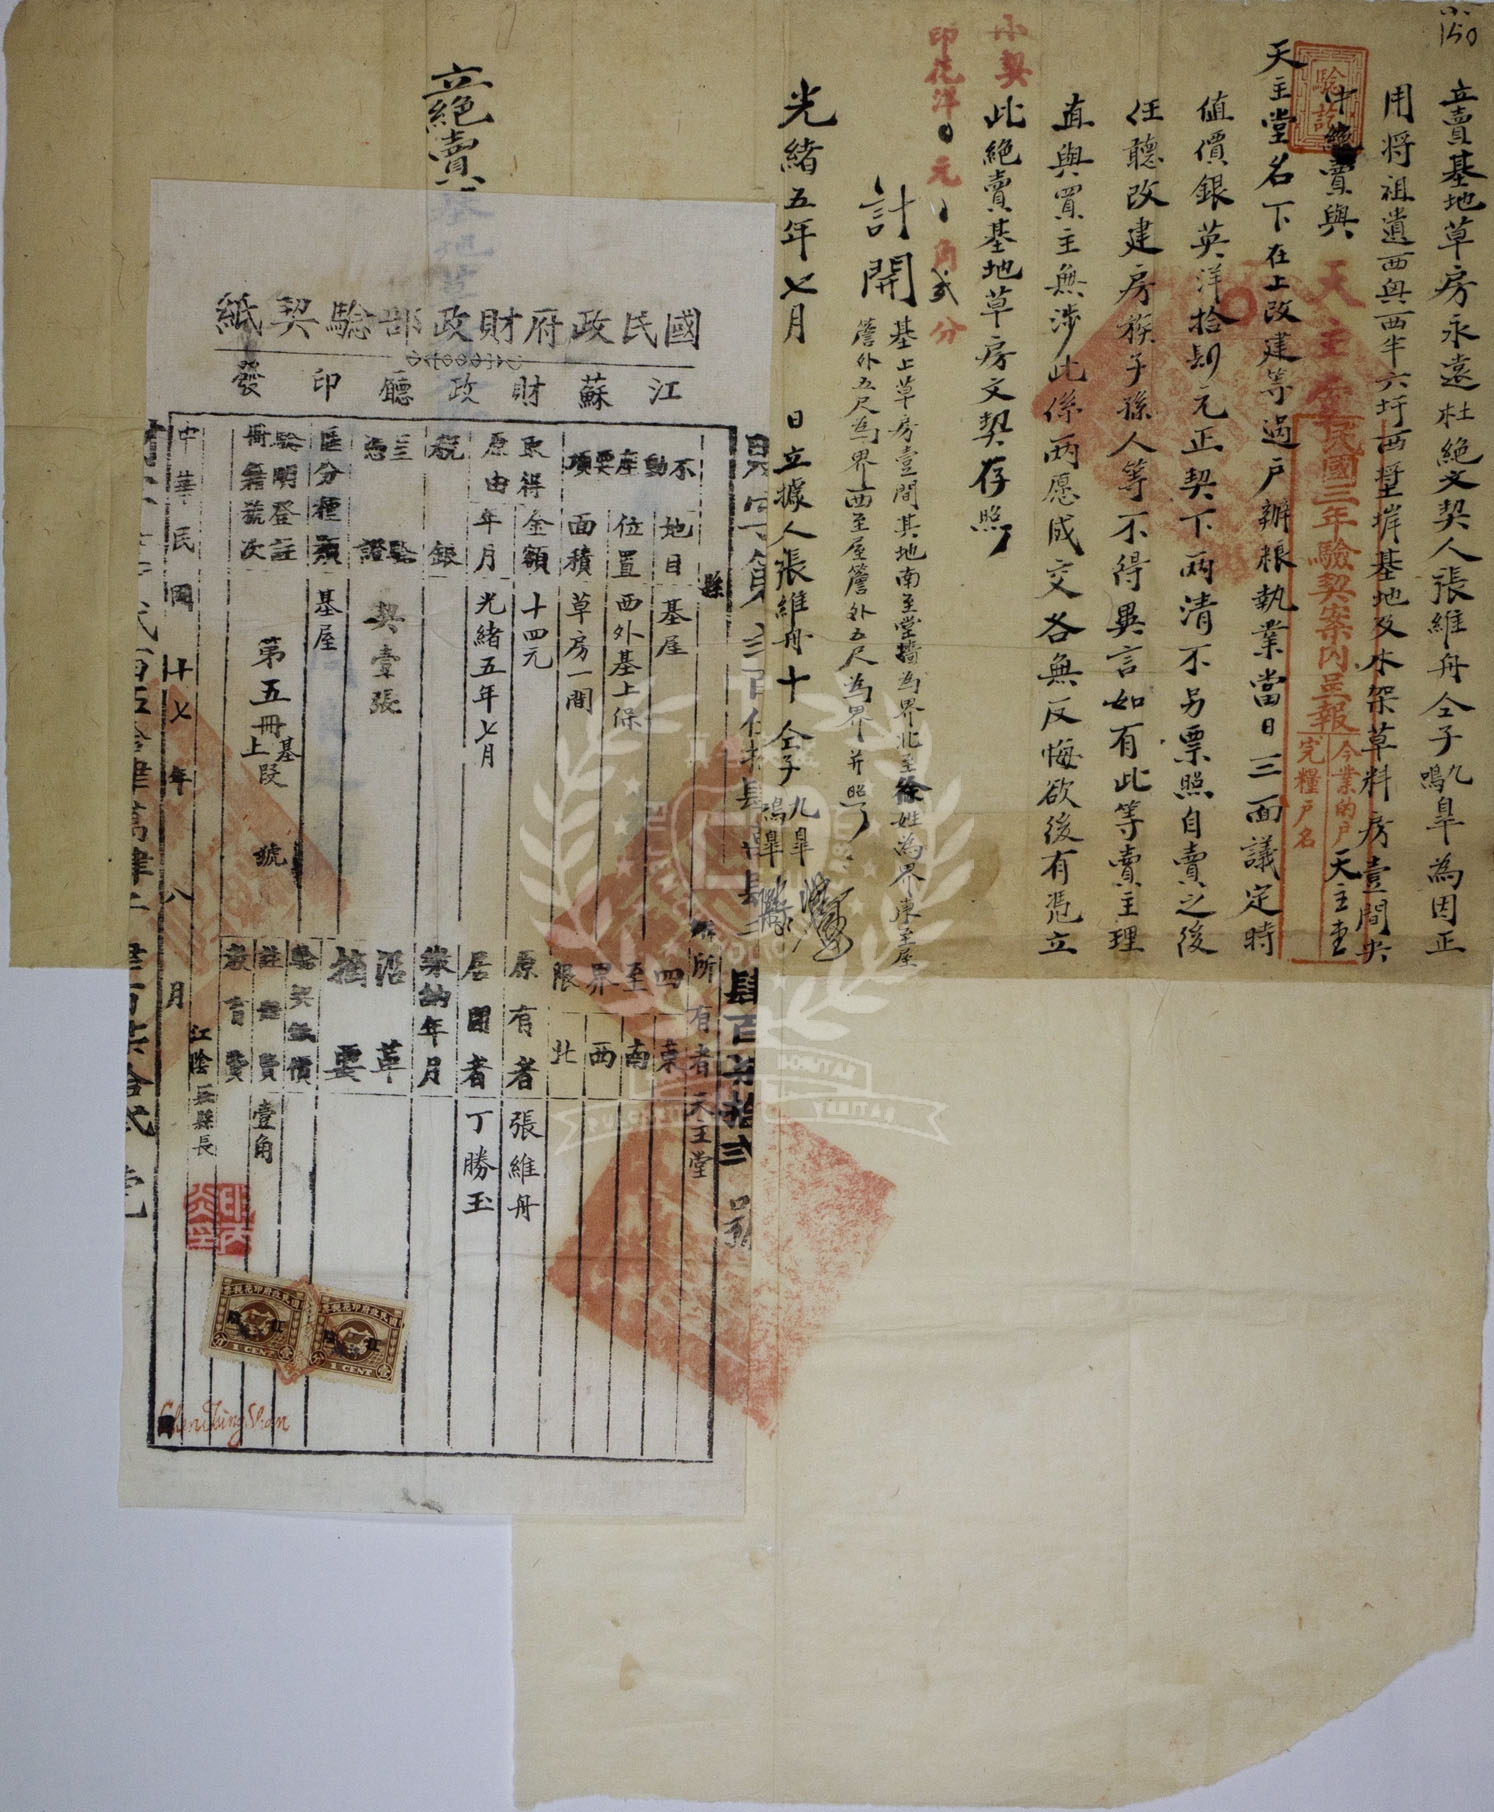 150
立賣基地草房永遠杜絶文契人張維舟仝子九鳴臯為因正
用將祖遺西與西半六圩西墅塂基地及木架草料房壹間央
中絶賣與
天主堂名下在上改建等過户辦粮執業當日三面議定時
值價銀英洋拾肆元正契下兩清不另票照自賣之後
任聽改建房㨿子孫人等不得異言如有此等賣主理
直與買主無涉此係兩愿成交各無反悔欲後有憑立
此絶賣基地草房文契存照
計開
基上草房壹間其地南至堂墻為界北至徐姓為界東至屋
簷外五尺為界西至屋簷外五尺為界并照
光緒五年七月 日立據人張維舟十仝子九鳴臯
立絶賣基地草
驗訖
天主堂
民國三年驗契案内呈報
今業的户天主堂
完糧户名
小契
印花洋〇元〇角弍分
國民政府財政部驗契紙
江蘇財政廳印發
縣
所有者 天主堂
不動產要項
地目 基屋
位置 西外基上保
面積 草房一間
四至界限
東
南
西
北
取得原由
金額 十四元
年月 光緒五年七月
原有者 張維舟
稅銀
居間者 丁勝玉
繳納年月
契壹張
沿革
摘要
區分種類 基屋
驗契紙價
驗明登記冊籍號次
第五冊基上段 號
註冊費 壹角
教育費
中華民國十七年八月
江陰縣縣長
1 CENT
1 CENT